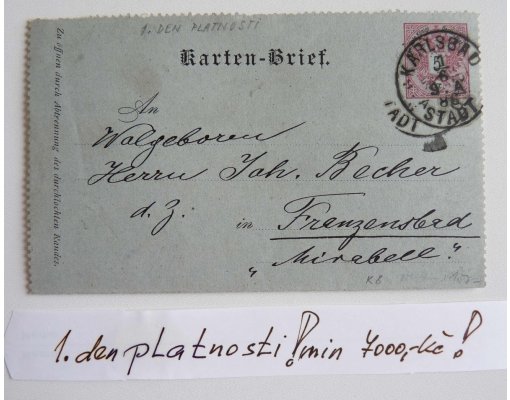 1. DEN PLATNOSTI
Karten-Brief.
KARLSBAD
1/6
9 A
86
STADT
An
Wolgeboren
Herrn Joh. Becher
d. Z. in Franzensbad
„Mirabell."
K8
Zu öffnen durch Abtrennung des durchlochten Randes.
1. den platnosti! min 7000,-kč!